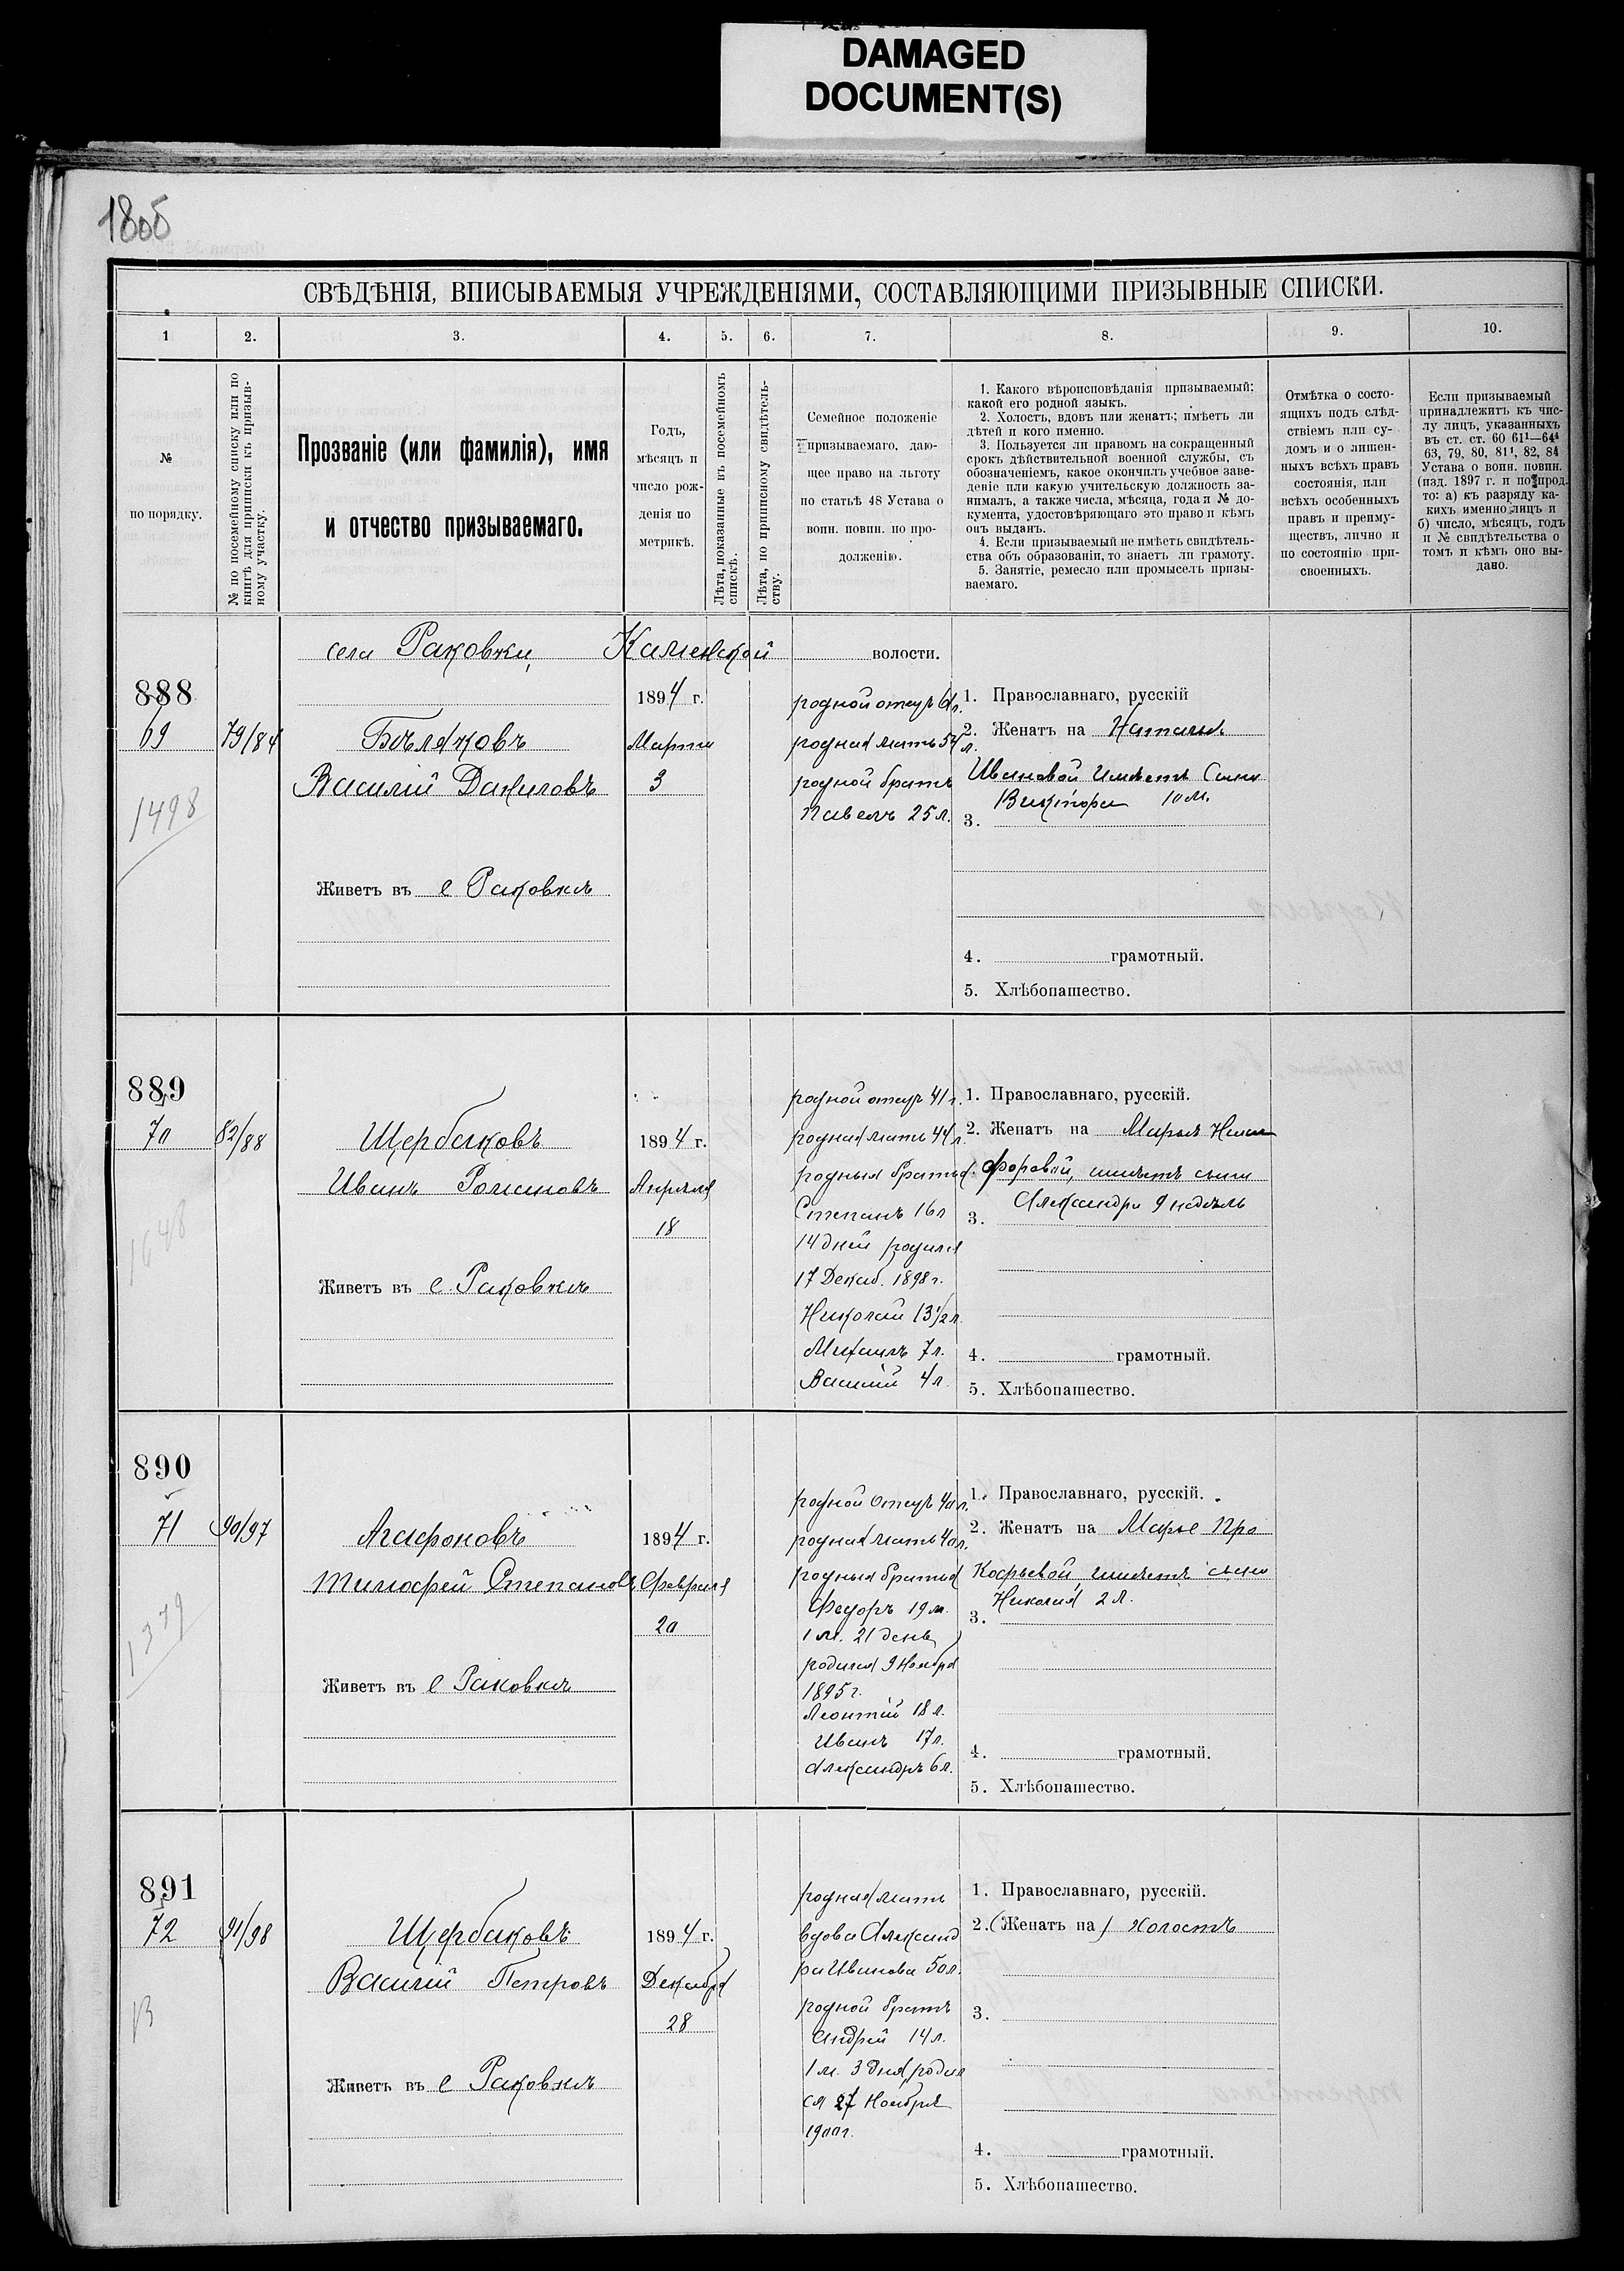 DAMAGED
DOCUMENT(S)
1805
СВѢДѢНІЯ, ВПИСЫВАЕМЫЯ УЧРЕЖДЕНІЯМИ, СОСТАВЛЯЮЩИМИ ПРИЗЫВНЫЕ СПИСКИ.
1 2. 3. 4. 5. 6. 7. 8. 9. 10.
№
по порядку.
№ по посемейному списку или по
книгѣ для приписки къ призыв-
ному участку.
Прозваніе (или фамилія), имя
и отчество призываемаго.
Годъ,
мѣсяцъ и
число рож-
денія по
метрикѣ.
Лѣта, показанные въ посемейномъ
спискѣ.
Лѣта, по приписному свидѣтель-
ству.
Семейное положеніе
призываемаго, даю-
щее право на льготу
по статьѣ 48 Устава о
воин. повин. по про-
долженію.
1. Какого вѣроисповѣданія призываемый;
какой его родной языкъ.
2. Холостъ, вдовъ или женатъ; имѣетъ ли
дѣтей и кого именно.
3. Пользуется ли правомъ на сокращенный
срокъ дѣйствительной военной службы, съ
обозначеніемъ, какое окончилъ учебное заве-
деніе или какую учительскую должность за-
нималъ, а также числа, мѣсяца, года и № до-
кумента, удостовѣряющаго это право и кѣмъ
онъ выданъ.
4. Если призываемый не имѣетъ свидѣтель-
ства объ образованіи, то знаетъ ли грамоту.
5. Занятіе, ремесло или промыселъ призы-
ваемаго.
Отмѣтка о состо-
ящихъ подъ слѣд-
ствіемъ или су-
домъ и о лишен-
ныхъ всѣхъ правъ
состоянія, или
всѣхъ особенныхъ
правъ и преиму-
ществъ, лично и
по состоянію при-
своенныхъ.
Если призываемый
принадлежитъ къ чис-
лу лицъ, указанныхъ
въ ст. ст. 60 61¹—64⁴
63, 79, 80, 81¹, 82, 84
Устава о воин. повин.
(изд. 1897 г. и по прод.
то: а) къ разряду ка-
кихъ именно лицъ и
б) число, мѣсяцъ, годъ
и № свидѣтельства о
томъ и кѣмъ оно вы-
дано.
села Раковки Каменской волости.
888
69 79/84
1498
Бѣляковъ
Василій Даниловъ
Живетъ въ с Раковкѣ
1894 г.
Марта
3
родной отецъ 61 л.
родная мать 54 л.
родной братъ
Павелъ 25 л.
1. Православнаго, русскій
2. Женатъ на Натальѣ
Ивановой имѣетъ сына
Виктора 10 м.
3.
4. грамотный.
5. Хлѣбопашество.
889
70 82/88
1648
Щербаковъ
Иванъ Романовъ
Живетъ въ с. Раковкѣ
1894 г.
Апрѣля
18
родной отецъ 41 г.
родная мать 44 л.
родныя братья
Степанъ 16 л
14 дней родился
17 Декаб. 1898 г.
Николай 13½ л.
Михаилъ 7 л.
Василій 4 л.
1. Православнаго, русскій.
2. Женатъ на Марьѣ Ники
форовой, имѣетъ сына
Александра 9 недѣль
3.
4. грамотный.
5. Хлѣбопашество.
890
71 90/97
1379
Агафоновъ
Тимофей Степановъ
Живетъ въ с Раковкѣ
1894 г.
Февраля
20
родной отецъ 40 л.
родная мать 40 л.
родныя братья
Федоръ 19 л.
1 м. 21 день
родился 9 Ноября
1895 г.
Леонтій 18 л.
Иванъ 17 л.
Александръ 6 л.
1. Православнаго, русскій.
2. Женатъ на Марье Про
кофьевой, имѣетъ сына
Николая 2 л.
3.
4. грамотный.
5. Хлѣбопашество.
891
72 91/98
Щербаковъ
Василій Петровъ
Живетъ въ с Раковкѣ
1894 г.
Декабря
28
родная мать
вдова Александ
ра Иванова 50 л.
родной братъ
Андрей 14 л.
1 м. 3 дня родил
ся 27 Ноября
1900 г.
1. Православнаго, русскій.
2. (Женатъ на) холостъ
3.
4. грамотный.
5. Хлѣбопашество.